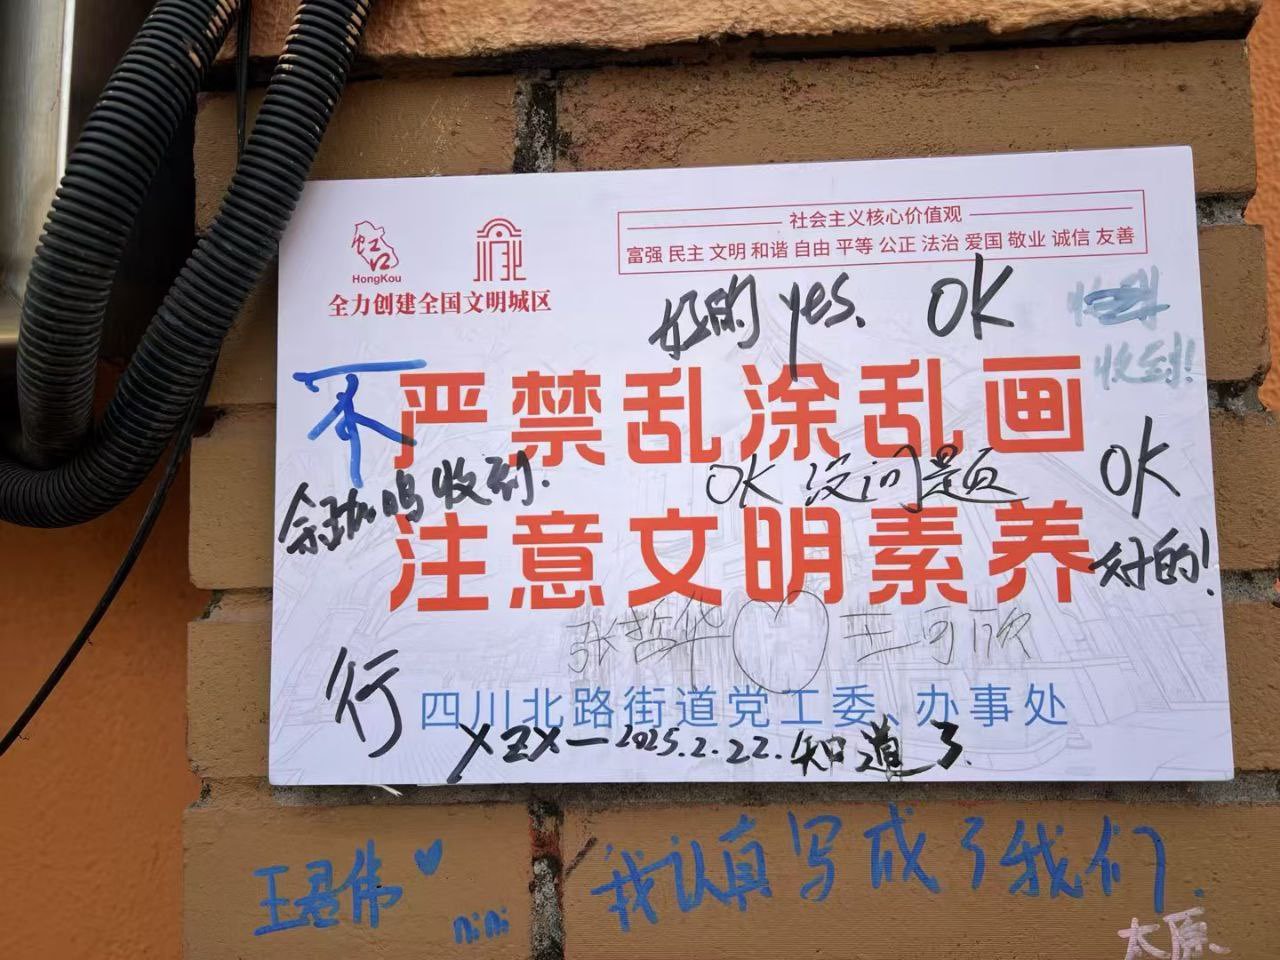 虹口
HongKou
川北
全力创建全国文明城区
社会主义核心价值观
富强 民主 文明 和谐 自由 平等 公正 法治 爱国 敬业 诚信 友善
好的 yes. OK
收到
收到!
不
严禁乱涂乱画
收到.
OK 没问题
OK
注意文明素养
好的!
张哲华♡王可欣
行
四川北路街道党工委、办事处
XZX—2025.2.22.知道了
王君伟♥
nini
我认真写成了我们.
太原